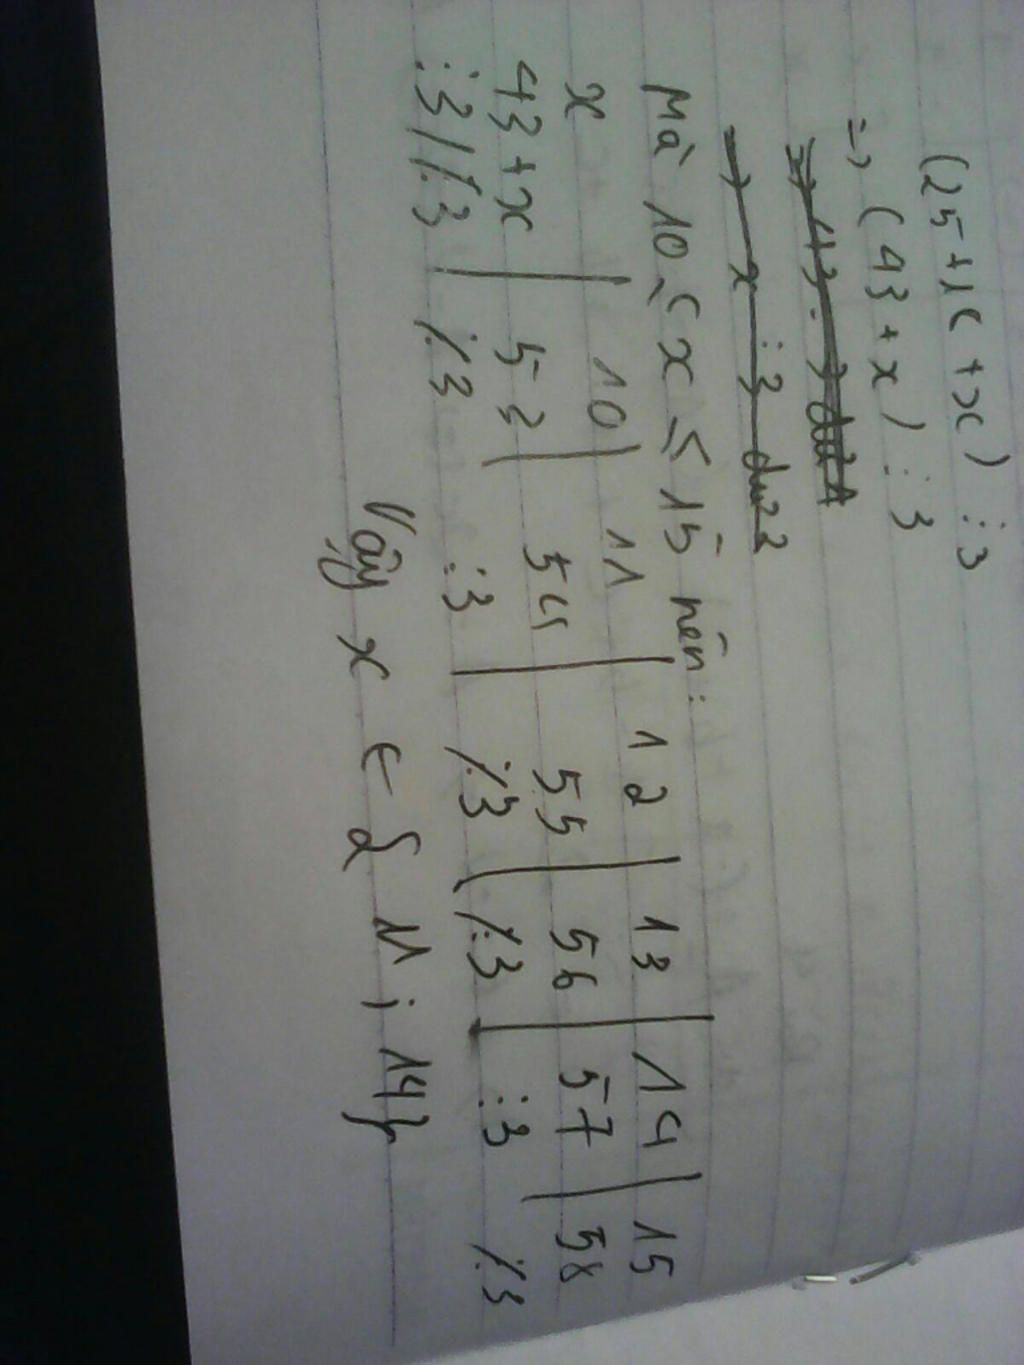 (25+18+x) ⋮ 3
=> (43+x) ⋮ 3
=> x ⋮ 3 dư 2
Mà 10 ≤ x ≤ 15 nên:
x | 10 | 11 | 12 | 13 | 14 | 15
43+x | 53 | 54 | 55 | 56 | 57 | 58
⋮3/⋮̸3 | ⋮̸3 | ⋮3 | ⋮̸3 | ⋮̸3 | ⋮3 | ⋮̸3
Vậy x ∈ { 11 ; 14}